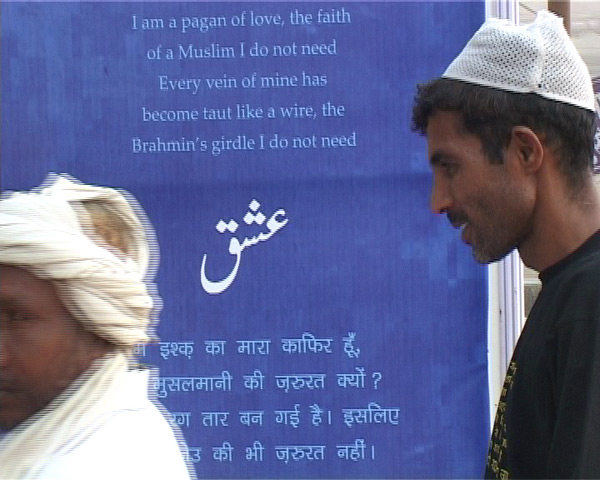 I am a pagan of love, the faith
of a Muslim I do not need
Every vein of mine has
become taut like a wire, the
Brahmin's girdle I do not need
عشق
इश्क़ का मारा काफिर हूँ,
मुसलमानी की ज़रुरत क्यों ?
रग तार बन गई है। इसलिए
की भी ज़रुरत नहीं।